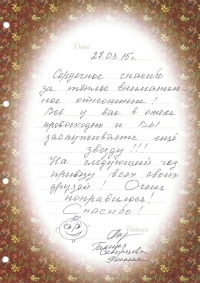 Дата
27.03.15г.
Сердечное спасибо
за тёплое внимательное отношение!
Всё у вас в отеле
превосходно и Вы
заслуживаете ещё
звезду!!!
На следующий год
привезу всех своих
друзей! Очень
понравилось!
Спасибо!